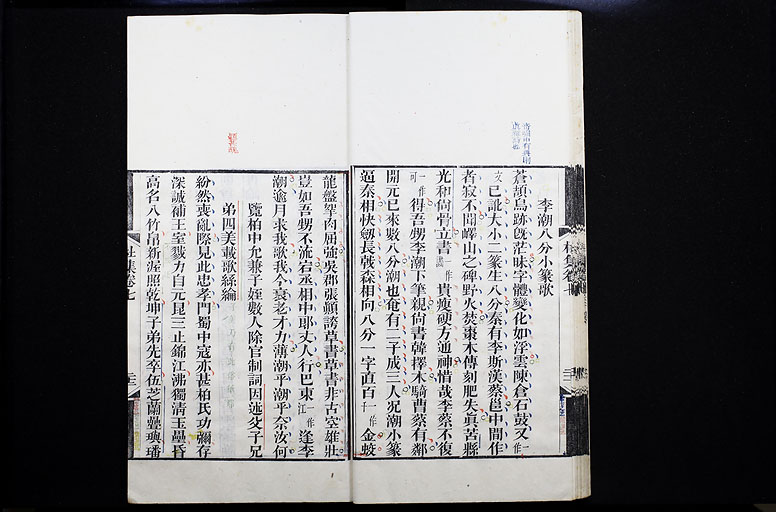 李潮八分小篆歌
蒼頡鳥跡旣茫昧字體變化如浮雲陳倉石鼓又一作
文已訛大小二篆生八分秦有李斯漢蔡邕中間作
者寂不聞嶧山之碑野火焚棗木傳刻肥失眞苦縣
光和尙骨立書一作貴瘦硬方通神惜哉李蔡不復
可一作得吾甥李潮下筆親尙書韓擇木騎曹蔡有鄰
開元已來數八分潮也奄有二子成三人况潮小篆
逼秦相快劒長戟森相向八分一字直百十一作金蛟
龍盤拏肉屈強吳郡張顚誇草書草書非古空雄壯
豈如吾甥不流宕丞相中郎丈人行巴東江一作逢李
潮逾月求我歌我今衰老才力薄潮乎潮乎奈汝何
覽柏中允兼子姪數人除官制詞因述父子兄
弟四美載歌絲綸
紛然喪亂際見此忠孝門蜀中寇亦甚柏氏功彌存
深誠補王室戮力自元昆三止錦江沸獨淸玉壘昏
高名入竹帛新渥照乾坤子弟先卒伍芝蘭疊璵璠
杜集卷七